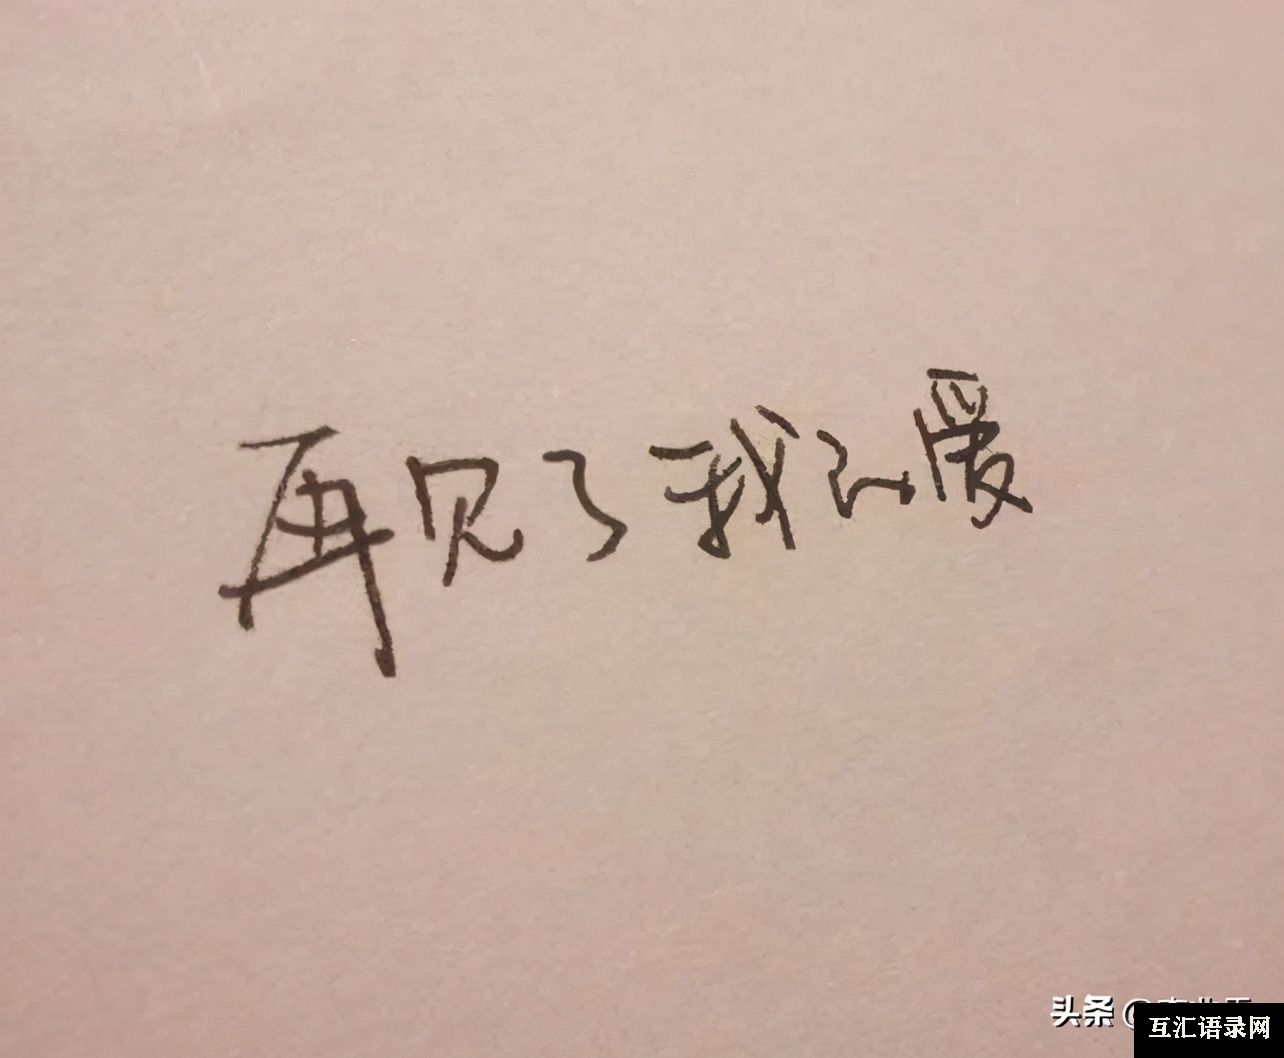 再见了我的爱
头条 @
互汇语录网